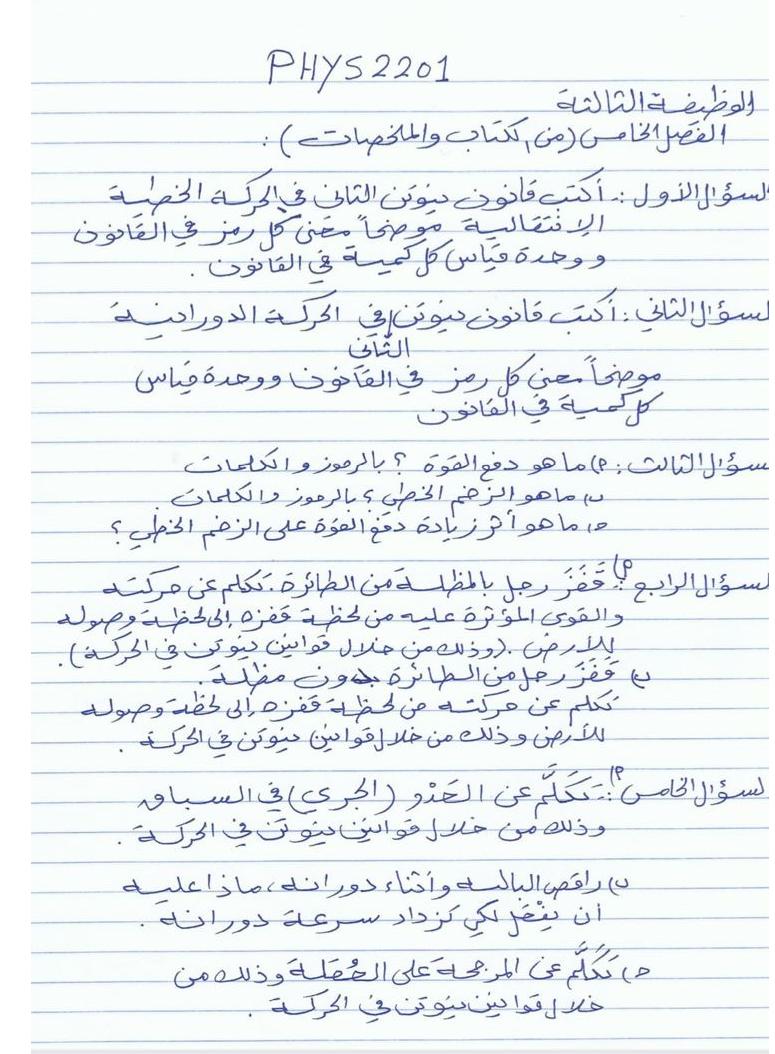 PHYS2201
الوظيفة الثالثة
الفصل الخامس (من الكتاب والملخصات):
السؤال الأول: أكتب قانون نيوتن الثاني في الحركة الخطية
الإنتقالية موضحاً معنى كل رمز في القانون
ووحدة قياس كل كمية في القانون.
السؤال الثاني: أكتب قانون نيوتن في الحركة الدورانية
الثاني
موضحاً معنى كل رمز في القانون ووحدة قياس
كل كمية في القانون
السؤال الثالث: أ) ما هو دفع القوة؟ بالرموز والكلمات
ب) ماهو الزخم الخطي؟ بالرموز والكلمات
ج) ما هو أثر زيادة دفع القوة على الزخم الخطي؟
السؤال الرابع: أ) قَفَزَ رجل بالمظلة من الطائرة. تكلم عن حركته
والقوى المؤثرة عليه من لحظة قفزه إلى لحظة وصوله
للأرض. (وذلك من خلال قوانين نيوتن في الحركة).
ب) قَفَزَ رجل من الطائرة بدون مظلة.
تكلم عن حركته من لحظة قفزه إلى لحظة وصوله
للأرض وذلك من خلال قوانين نيوتن في الحركة.
السؤال الخامس: أ) تَكَلَّم عن العَدْو (الجري) في السباق
وذلك من خلال قوانين نيوتن في الحركة.
ب) راقص الباليه وأثناء دورانه، ماذا عليه
أن يفْعَل لكي تزداد سرعة دورانه.
ج) تَكَلَّم عن المرجحة على العُقلة وذلك من
خلال قوانين نيوتن في الحركة.